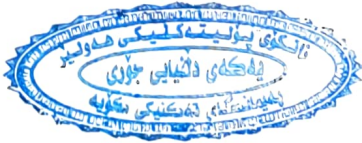 زانكۆی پۆلیتەكنیكی هەولێر
یەكەی دڵنیایی جۆری
پەیمانگەی تەكنیكی سۆران